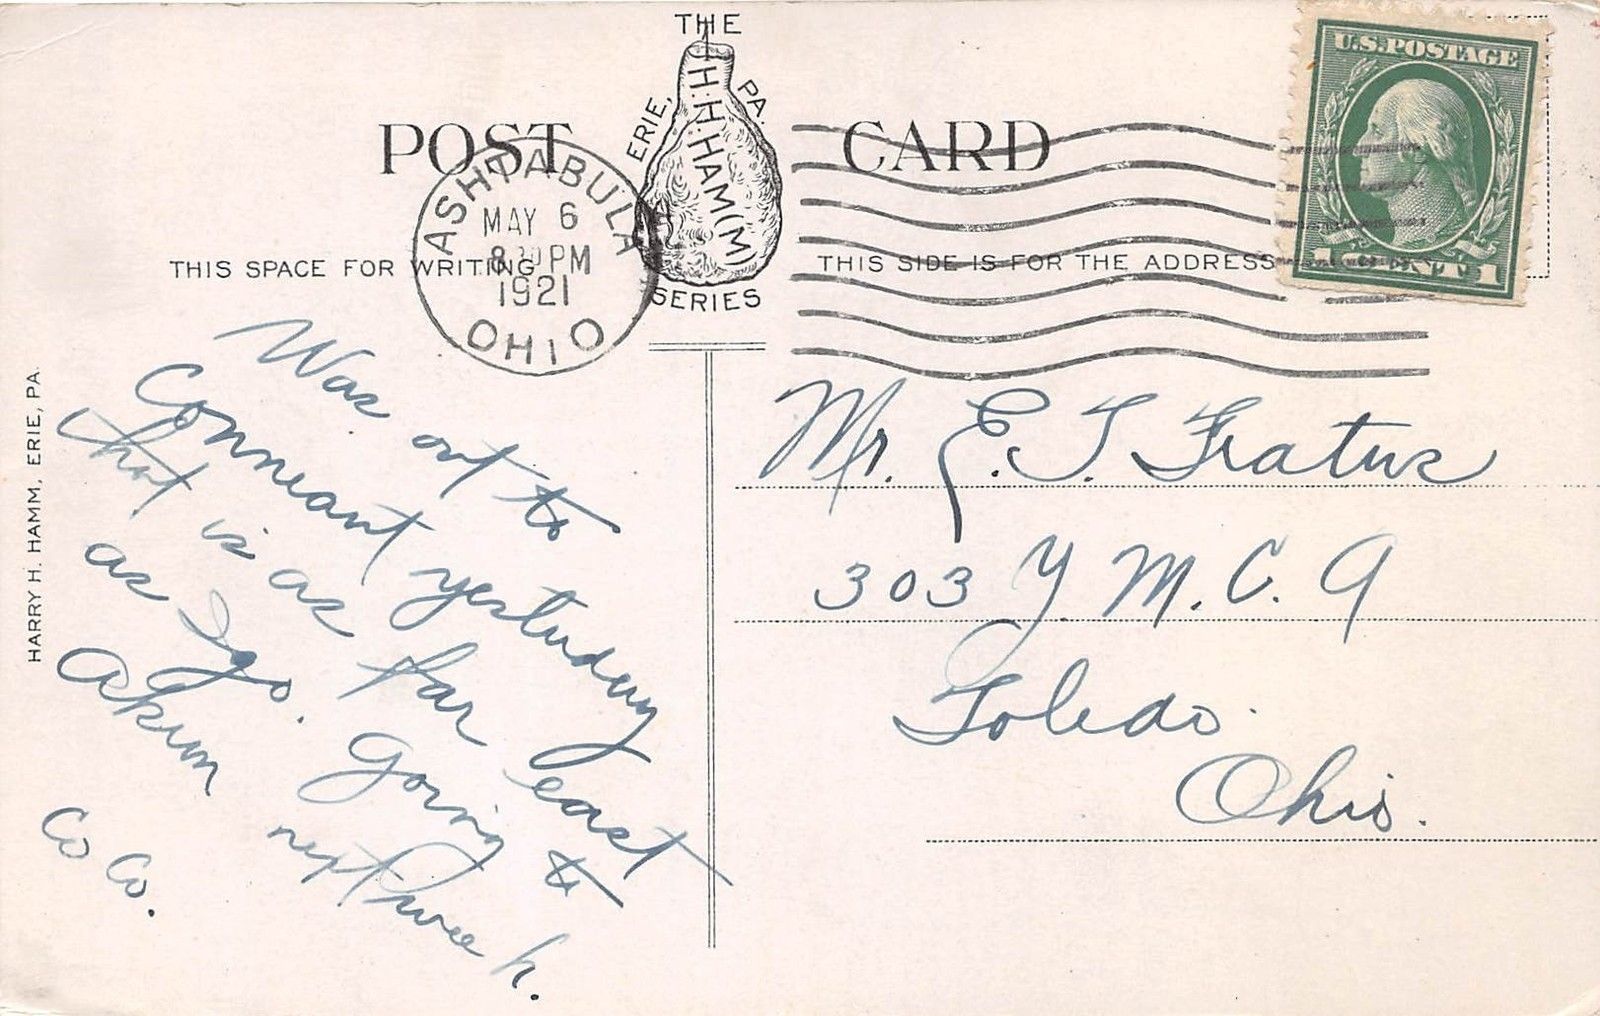 THE
H.H.HAM(M)
ERIE, PA.
SERIES
POST CARD
ASHTABULA
MAY 6
PM
1921
OHIO
THIS SPACE FOR WRITING
THIS SIDE IS FOR THE ADDRESS
U.S. POSTAGE
1 CENT 1
HARRY H. HAMM, ERIE, PA.
Was out to
Conneaut yesterday
that is as far east
as I go. Going to
Akron next week.
Mr. E. T. Fratus
303 Y. M. C. A
Toledo.
Ohio.